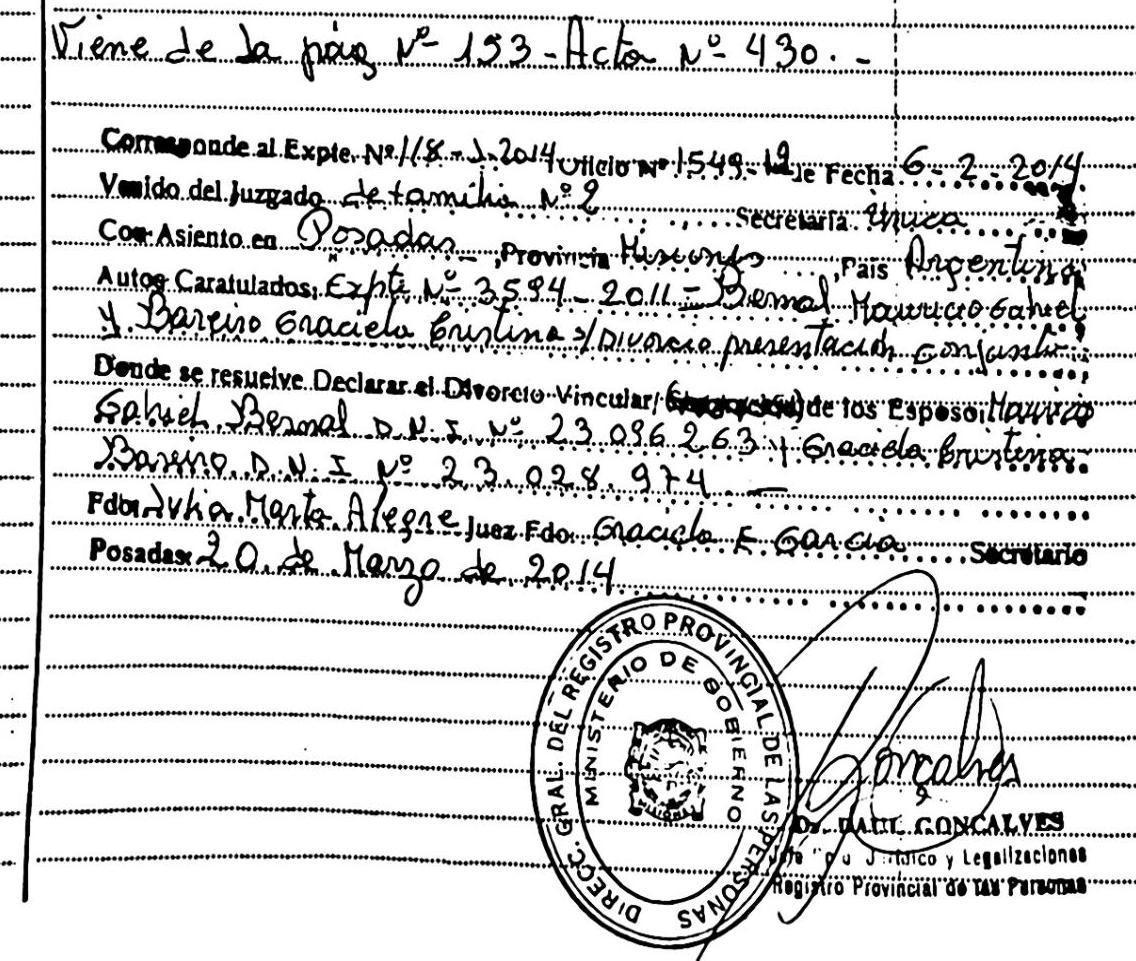 Viene de la pág Nº 193 - Acta Nº 430. -
Corresponde al Expte. Nº 118 - J - 2014 Oficio Nº 1549 - 12 de Fecha 6 - 2 - 2014
Venido del Juzgado de familia Nº 2 Secretaría Unica
Con Asiento en Posadas, Provincia Misiones, País Argentina
Autos Caratulados: Expte Nº 3594 - 2011 = Bernal Mauricio Gabriel
y Bareiro Graciela Cristina s/ Divorcio presentación conjunta
Donde se resuelve Declarar el Divorcio Vincular/ de los Esposo: Mauricio
Gabriel Bernal D.N.I. Nº 23 096 263 y Graciela Cristina
Bareiro D.N.I Nº 23.028.974 —
Fdo: Julia Marta Alegre Juez Fdo: Graciela E Garcia Secretario
Posadas: 20 de Marzo de 2014
DIRECC. GRAL. DEL REGISTRO PROVINCIAL DE LAS PERSONAS
MINISTERIO DE GOBIERNO
Goncalves
Dr. RAUL GONCALVES
Jurídico y Legalizaciones
Registro Provincial de las Personas